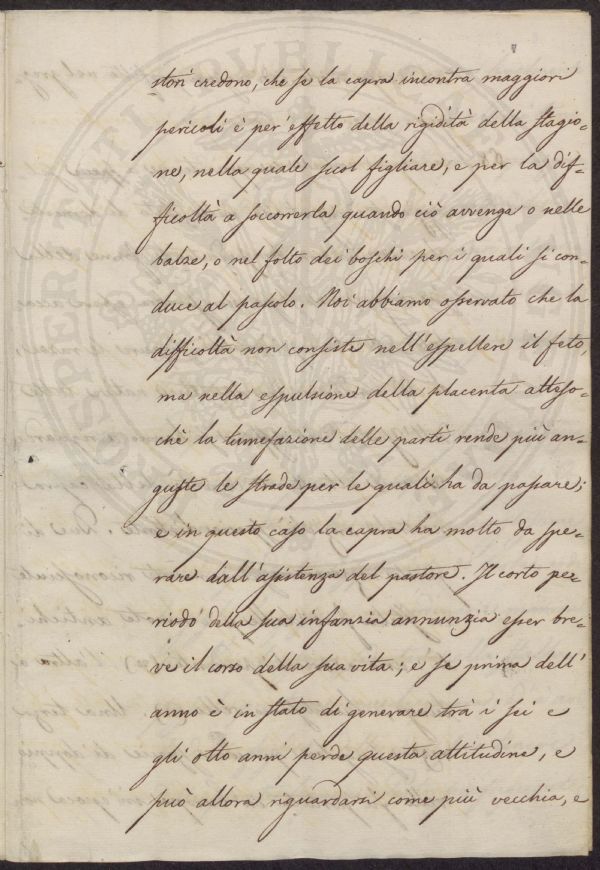 stori credono, che se la capra incontra maggiori
pericoli è per effetto della rigidità della stagio=
ne, nella quale suol figliare, e per la dif=
ficoltà a soccorrerla quando ciò avvenga o nelle
balze, o nel folto dei boschi per i quali si con=
duce al pascolo. Noi abbiamo osservato che la
difficoltà non consiste nell'espellere il feto,
ma nella espulsione della placenta atteso=
chè la tumefazione delle parti rende più an=
guste le strade per le quali ha da passare;
e in questo caso la capra ha molto da spe=
rare dall'assistenza del pastore. Il corto pe=
riodo della sua infanzia annunzia esser bre=
ve il corso della sua vita; e se prima dell'
anno è in stato di generare trà i sei e
gli otto anni perde questa attitudine, e
può allora riguardarsi come più vecchia, e